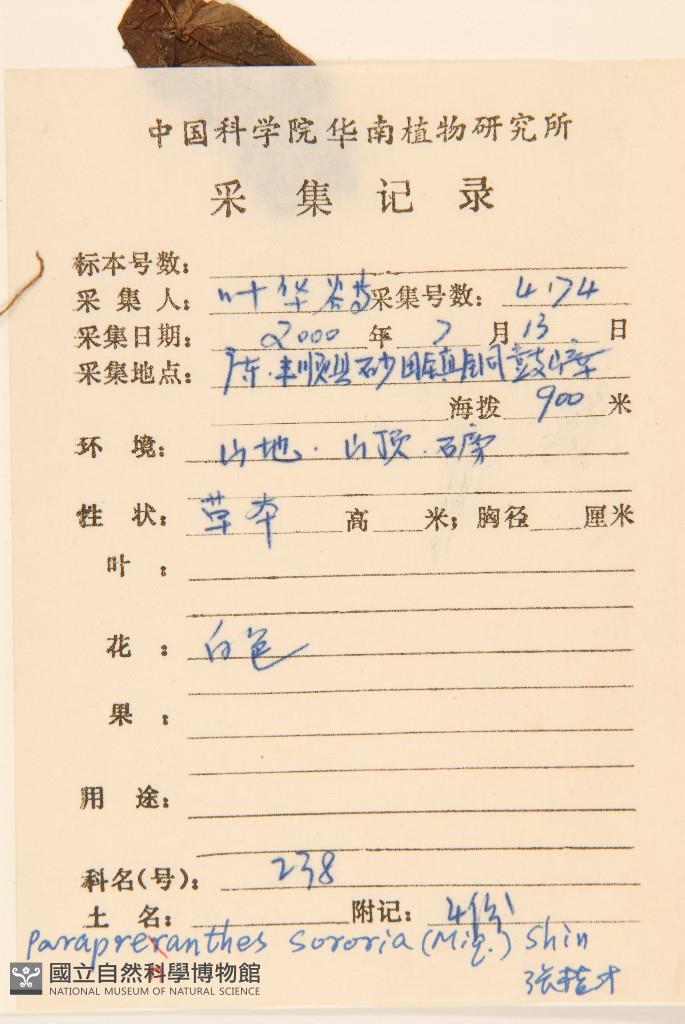 中国科学院华南植物研究所
采集记录
标本号数:
采集人: 叶华谷 采集号数: 4174
采集日期: 2000 年 7 月 13 日
采集地点: 广东.丰顺县砂田镇铜鼓嶂
海拨 900 米
环境: 山地.山顶.石旁
性状: 草本 高 米; 胸径 厘米
叶:
花: 白色
果:
用途:
科名(号): 238
土名: 附记: 4份
Paraprenanthes sororia (Miq.) Shih
张桂才
國立自然科學博物館
NATIONAL MUSEUM OF NATURAL SCIENCE